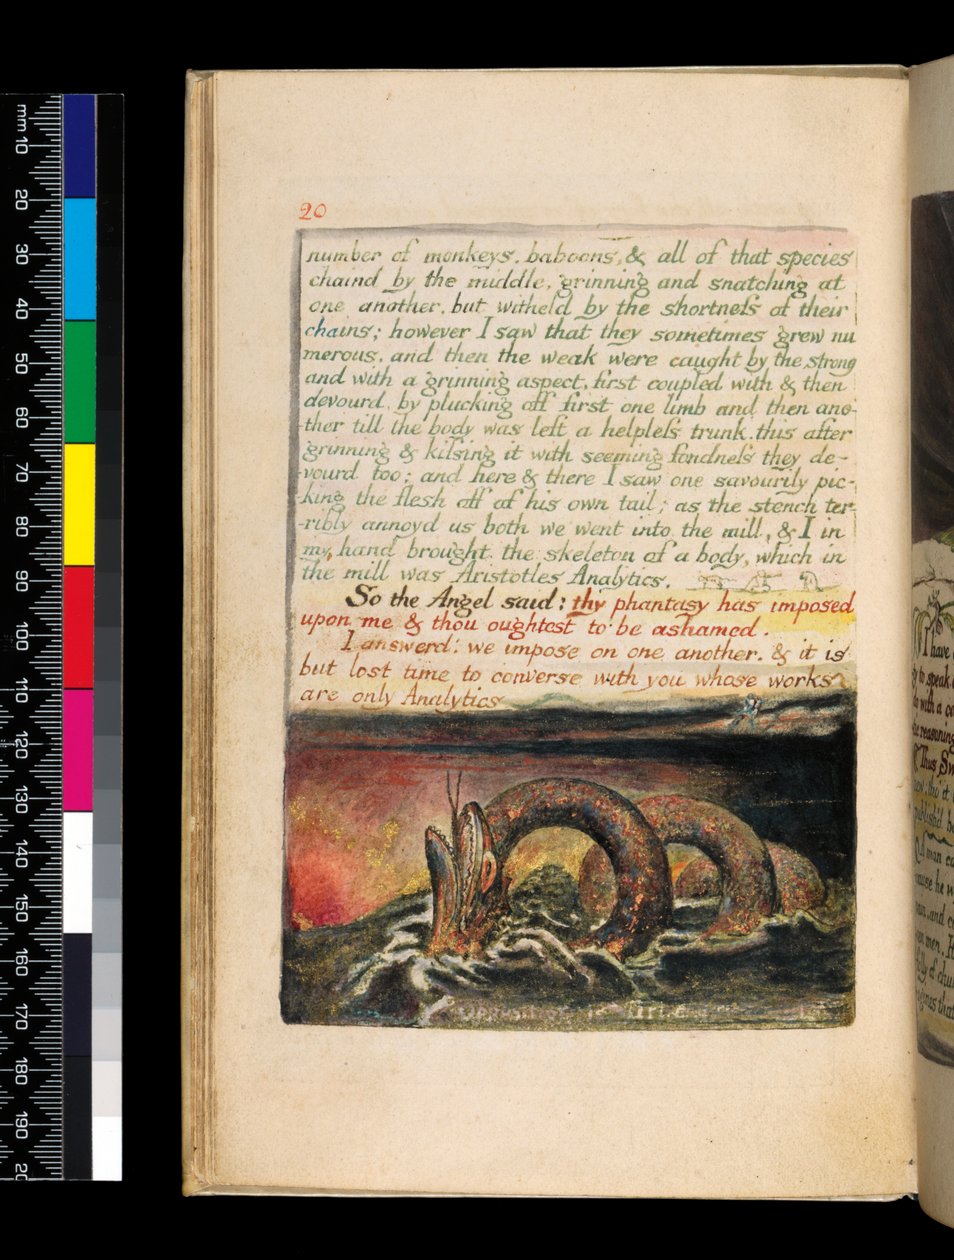 20
number of monkeys, baboons, & all of that species
chaind by the middle, grinning and snatching at
one another, but witheld by the shortness of their
chains; however I saw that they sometimes grew nu
merous, and then the weak were caught by the strong
and with a grinning aspect, first coupled with & then
devourd, by plucking off first one limb and then ano-
ther till the body was left a helpless trunk. this after
grinning & kissing it with seeming fondness they de-
vourd too; and here & there I saw one savourily pic-
king the flesh off of his own tail; as the stench ter-
-ribly annoyd us both we went into the mill, & I in
my hand brought the skeleton of a body, which in
the mill was Aristotles Analytics.
So the Angel said: thy phantasy has imposed
upon me & thou oughtest to be ashamed.
I answerd: we impose on one another, & it is
but lost time to converse with you whose works
are only Analytics
mm 10
20
30
40
50
60
70
80
90
100
110
120
130
140
150
160
170
180
190
I have
to speak
with a
reasoning
Thus Sw
it
publish'd
A man